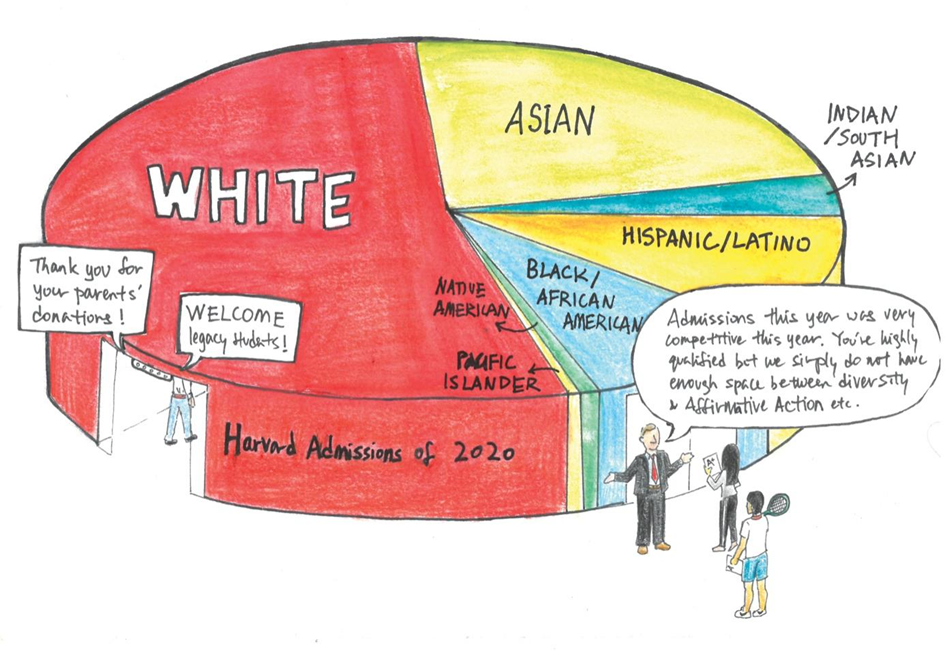 ASIAN
INDIAN
/SOUTH
ASIAN
WHITE
HISPANIC/LATINO
BLACK/
AFRICAN
AMERICAN
NATIVE
AMERICAN
PACIFIC
ISLANDER
Thank you for
your parents'
donations!
WELCOME
legacy students!
Admissions this year was very
competitive this year. You're highly
qualified but we simply do not have
enough space between diversity
& Affirmative Action etc.
Harvard Admissions of 2020
A+